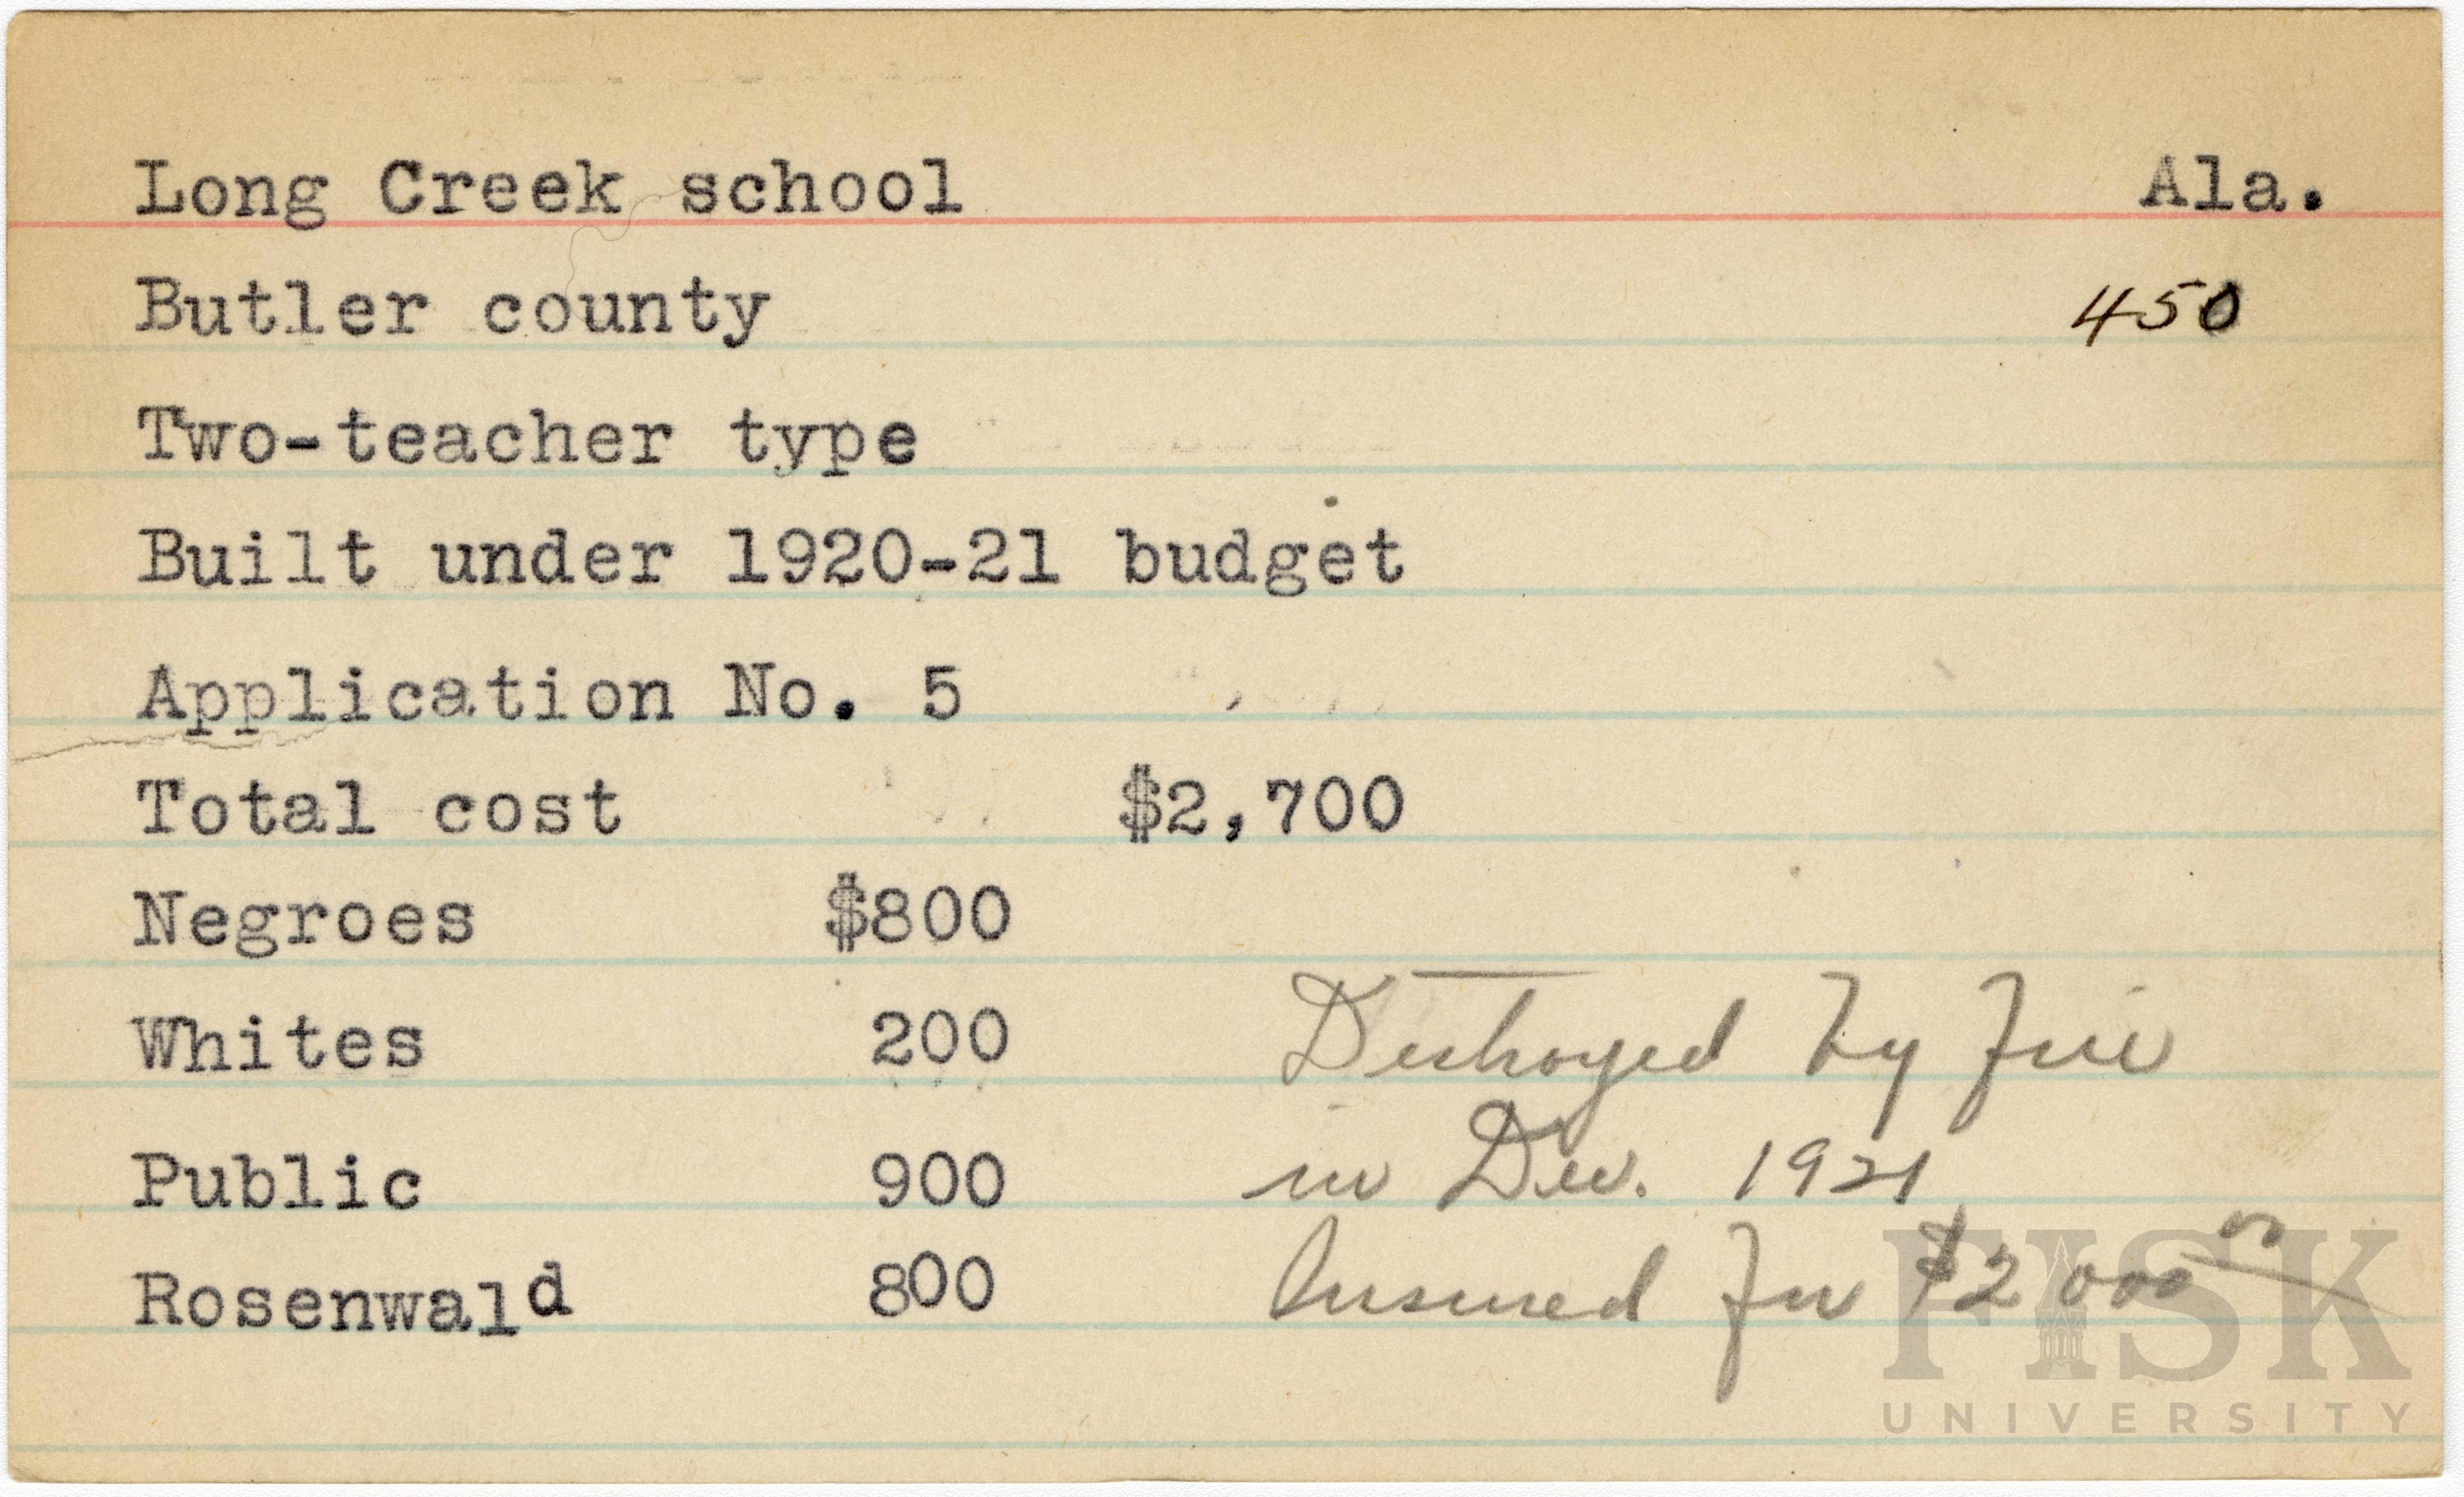 Long Creek school Ala.
Butler county 450
Two-teacher type
Built under 1920-21 budget
Application No. 5
Total cost $2,700
Negroes $800
Whites 200 Destroyed by fire
Public 900 in Dec. 1921
Rosenwald 800 Insured for $2000 00
FISK
UNIVERSITY